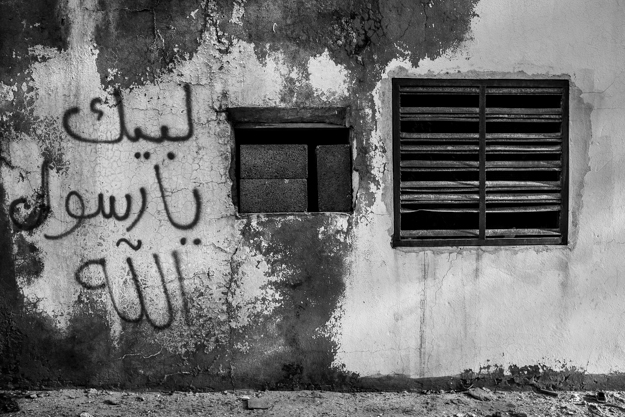 لبيك
يارسول
الله